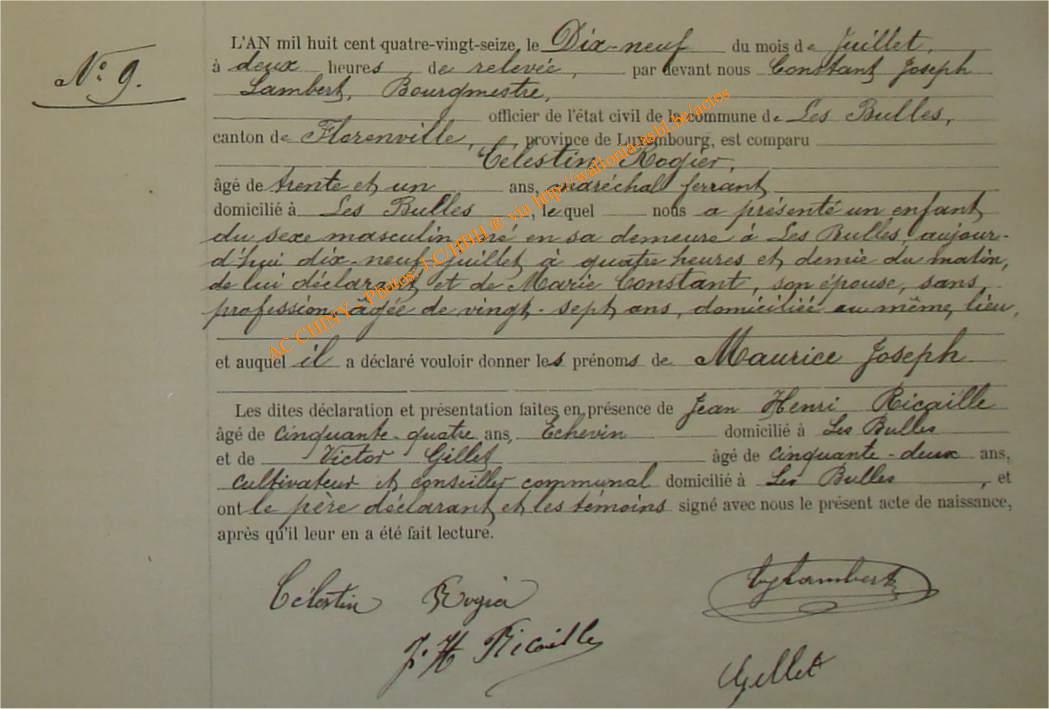 L'AN mil huit cent quatre-vingt-seize, le Dix-neuf du mois de Juillet,
N° 9.
à deux heures de relevée, par devant nous Constant Joseph
Lambert, Bourgmestre,
officier de l'état civil de la commune de Les Bulles,
canton de Florenville, province de Luxembourg, est comparu
Célestin Rogier,
âgé de trente et un ans, maréchal ferrant
domicilié à Les Bulles, lequel nous a présenté un enfant
du sexe masculin né en sa demeure à Les Bulles, aujour-
d'hui dix-neuf Juillet à quatre heures et demie du matin,
de lui déclarant et de Marie Constant, son épouse, sans
profession, âgée de vingt-sept ans, domiciliée au même lieu,
et auquel il a déclaré vouloir donner les prénoms de Maurice Joseph
Les dites déclaration et présentation faites en présence de Jean Henri Ricaille
âgé de cinquante-quatre ans, Echevin domicilié à Les Bulles
et de Victor Gillet âgé de cinquante-deux ans,
cultivateur et conseiller communal domicilié à Les Bulles, et
ont le père déclarant et les témoins signé avec nous le présent acte de naissance,
après qu'il leur en a été fait lecture.
Célestin Rogier
Lambert
J. H Ricaille
Gillet
AC CHINY - Photos J.C HBH ® via http://wallonia.nshi.be/actes